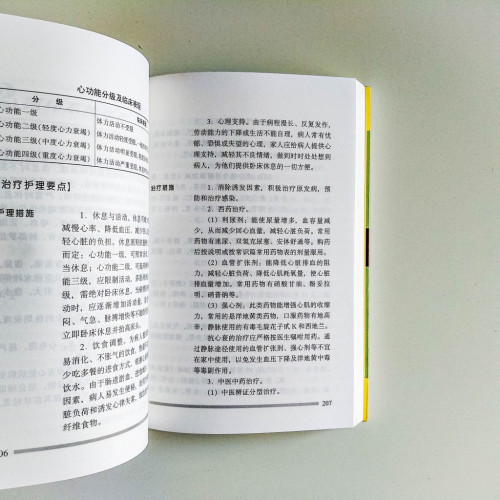 心功能分级及临床表现
分 级
心功能一级
体力活动不受限
心功能二级(轻度心力衰竭)
体力活动轻度受限
心功能三级(中度心力衰竭)
体力活动明显受限
心功能四级(重度心力衰竭)
体力活动严重受限
治疗护理要点】
护理措施
1. 休息与活动。休息可
减慢心率、降低血压、减少
轻心脏的负担。休息原则
而定:心功能一级,可照常
当休息;心功能二级,可
能三级,应限制活动,多
级,需绝对卧床休息,
动时,应逐渐增加活动量,
闷、气急、脉搏增快等不
立即卧床休息并抬高床头。
2. 饮食调整。为病人
易消化、不胀气的饮食,
少吃多餐的进食方式,
饮水。由于肠道淤血、进食
因素,病人易发生便秘,
脏负荷和诱发心律失常,
纤维食物。
06
3. 心理支持。由于病程漫长、反复发作,
劳动能力的下降或生活不能自理,病人常有忧
郁、恐惧或失望的心理,家人应给病人提供心
理支持,减轻其不良情绪,做到时时处处想到
病人,为他们提供卧床休息的一切方便。
治疗措施
1. 消除诱发因素,积极治疗原发病,预
防和治疗感染。
2. 西药治疗。
(1) 利尿剂:能使尿量增多,血容量减
少,从而减少回心血量,减轻心脏负荷。常用
药物有速尿、双氢克尿塞、安体舒通等。购药
后按说明或按常识篇常用药物表的剂量服用。
(2) 血管扩张剂:能降低心脏排血的阻
力,减轻心脏负荷、降低心肌耗氧量,使心脏
排血量增加。常用药物有硝酸甘油、酚妥拉
明、硝普钠等。
(3) 强心剂:此类药物能增强心肌的收缩
力,常用的是洋地黄类药物,口服药物有地高
辛,静脉使用的有毒毛旋花子甙 K 和西地兰。
抗心衰的治疗应严格按医生嘱咐用药。通
过静脉途径使用的血管扩张剂、强心剂等不宜
在家中使用,以免发生血压下降及洋地黄中毒
等毒副作用。
3. 中医中药治疗。
(1) 中医辨证分型治疗。
207